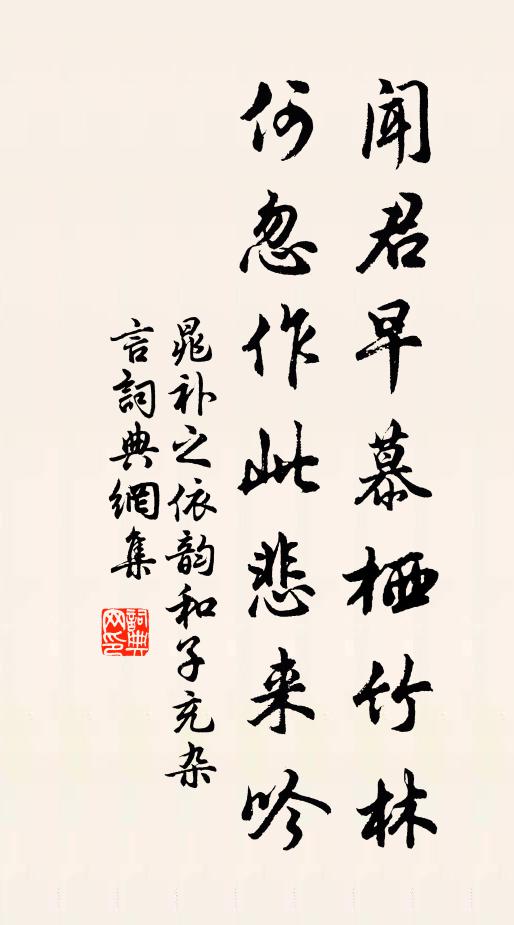 闻君早慕栖竹林
何忽作此悲来吟
晁补之依韵和子充杂
言詞典網集
詞典网印